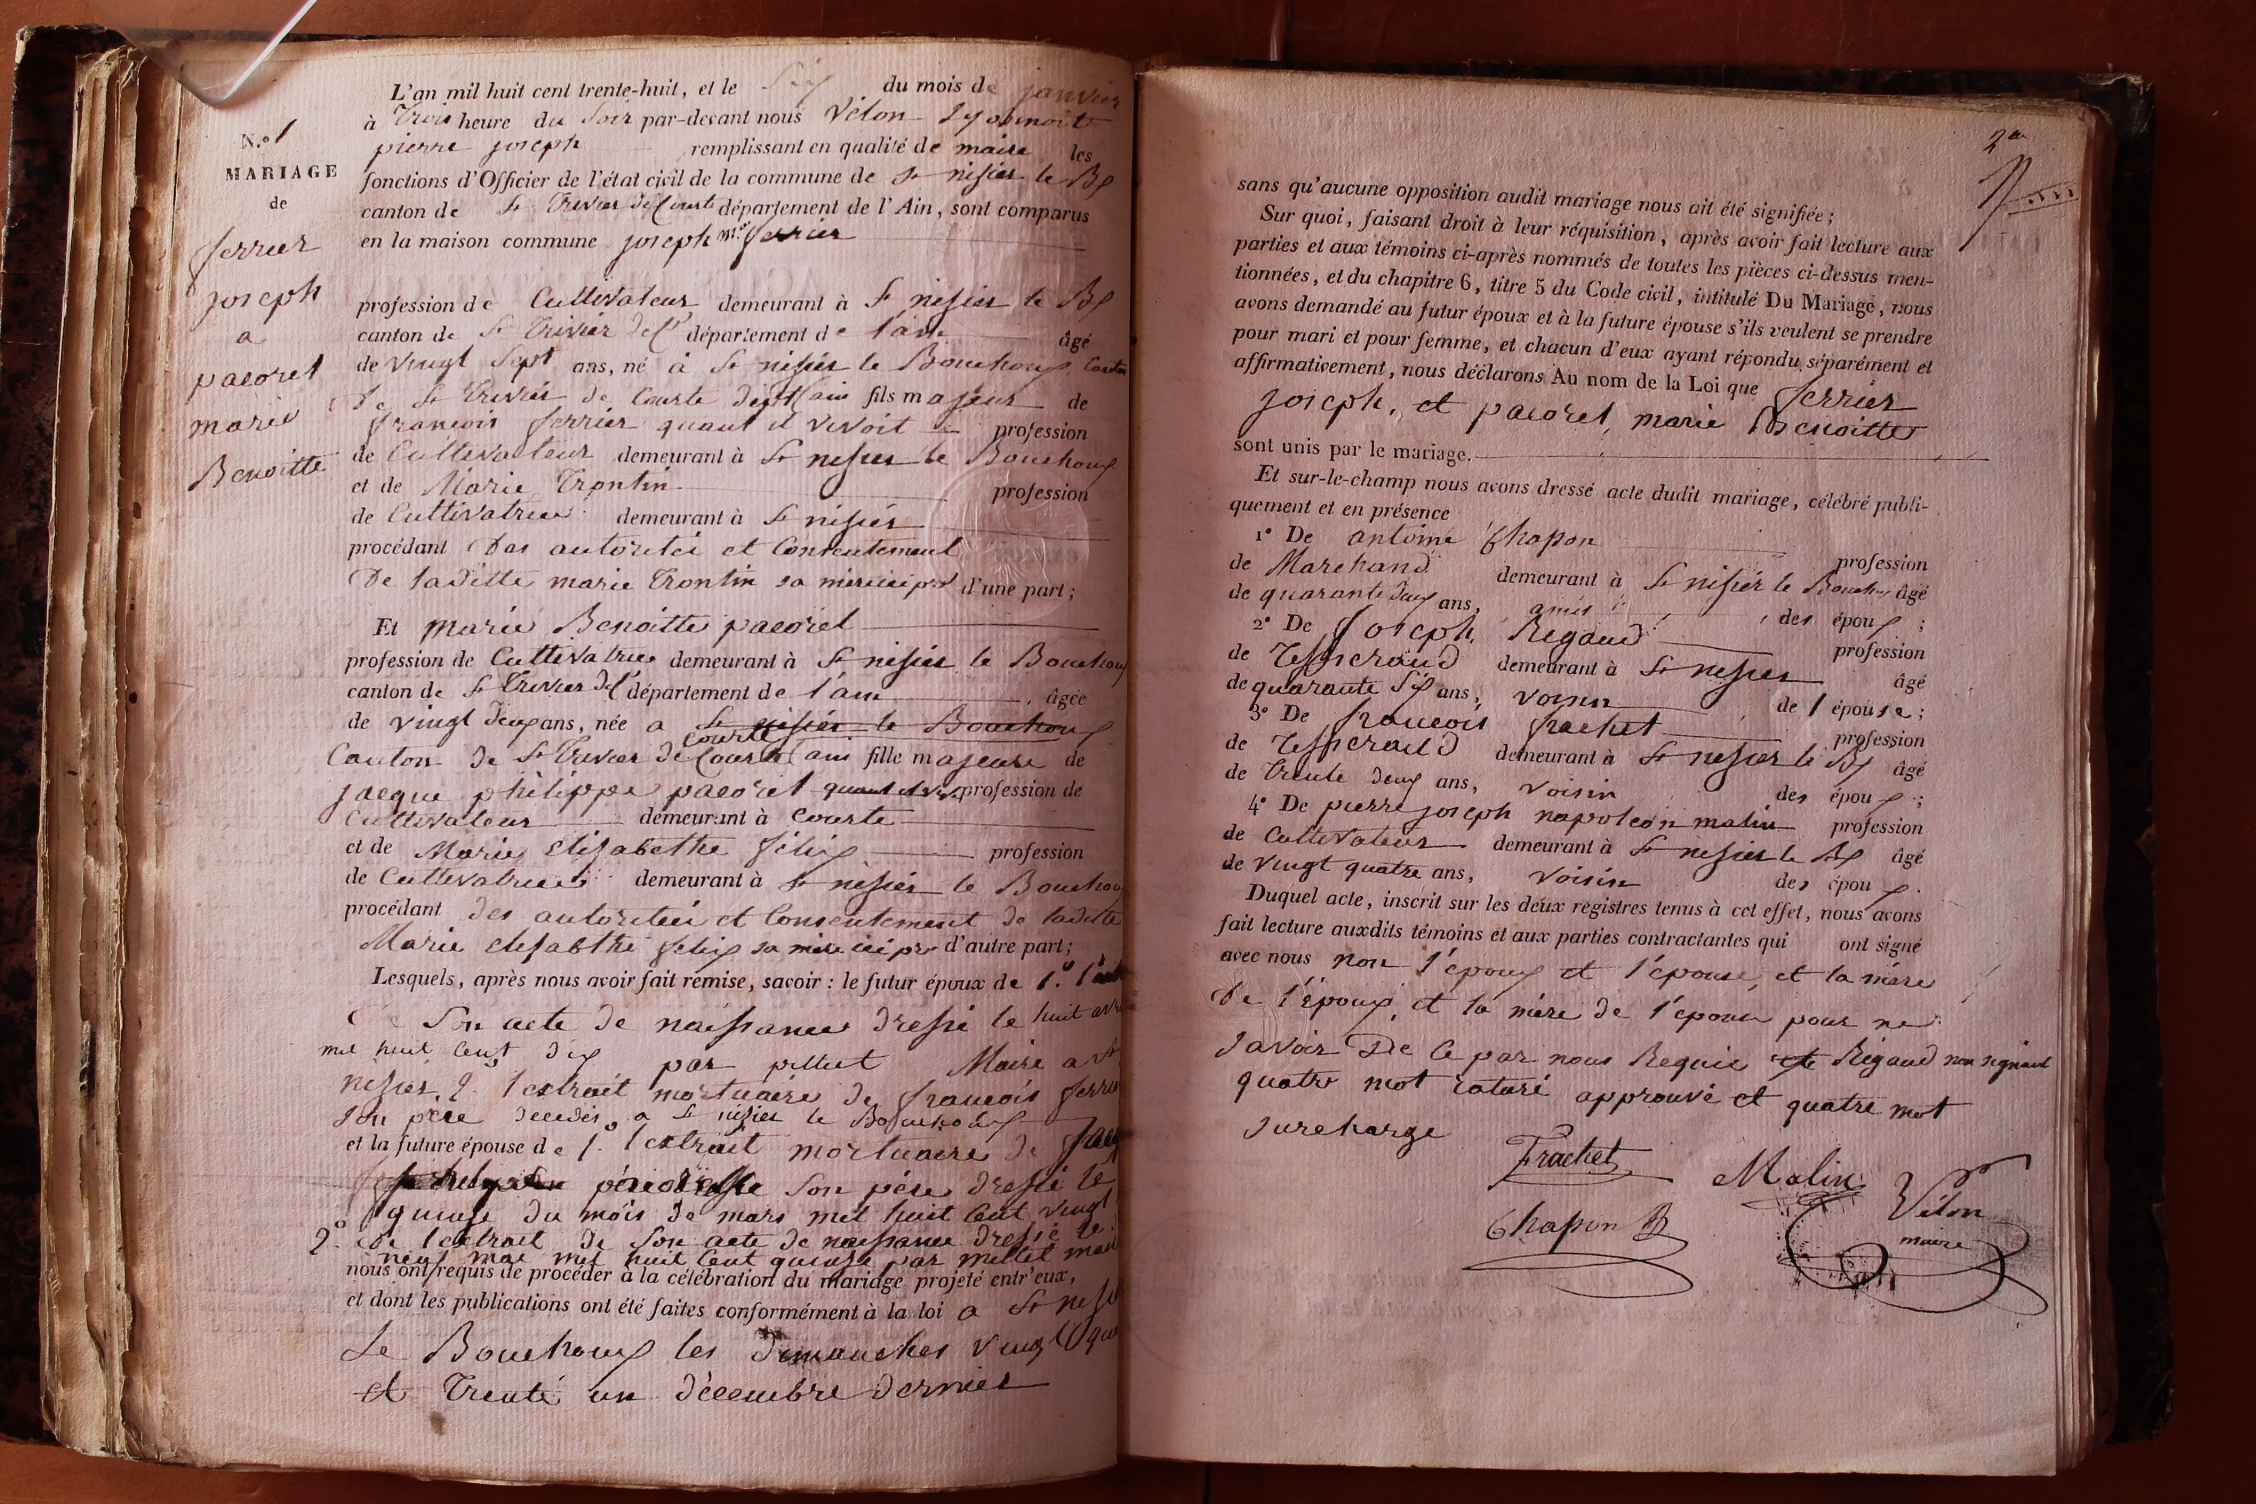 L'an mil huit cent trente-huit, et le Six du mois de janvier
à Trois heure du Soir par-devant nous Vélon
pierre joseph remplissant en qualité de maire les
N.º 1
fonctions d'Officier de l'état civil de la commune de St nisier le Bx
MARIAGE
canton de St Trivier de Courte département de l'Ain, sont comparus
de
en la maison commune joseph ferrier
ferrier
joseph
a
pacoret
marie
Benoitte
profession de Cultivateur demeurant à St nisier le Bx
canton de St Trivier de Cte département de l'ain âgé
de vingt Sept ans, né à St nisier le Bouchoux Canton
De St Trivier de Courte dépt ain fils majeur de
françois ferrier quant il vivoit profession
de Cultivateur demeurant à St nisier le Bouchoux
et de Marie Trontin profession
de Cultivatrice demeurant à St nisier
procédant Des autoritéi et Consentement
De laditte marie Trontin sa mère ici pr d'une part;
Et marie Benoitte pacoret
profession de Cultivatrice demeurant à St nisier le Bouchoux
canton de St Trivier de Ct département de l'ain, âgée
de vingt deux ans, née a St nisier le Bouchoux
Courte
Canton de St Trivier de Courte ain fille majeure de
jacque philippe pacoret quant il viv profession de
Cultivateur demeurant à Courte
et de Marie elisabethe félix profession
de Cultivatrice demeurant à St nisier le Bouchoux
procédant des autoritéi et Consentement de laditte
Marie elisabthe felix sa mère ici pr d'autre part;
Lesquels, après nous avoir fait remise, savoir: le futur époux de 1.º
De Son acte de naissance dressé le huit avril
mil huit Cent dix par pillet Maire a St
nisier, 2.º l'extrait mortuaire de françois ferrier
son père décédéi a St nisier le Bouchoux
et la future épouse de 1.º l'extrait mortuaire de
Son père dressé le
quinze du mois de mars mil huit Cent vingt
2.º De l'extrait de Son acte de naissance dressé le
neuf mai mil huit Cent quinze par millet maire
nous ont requis de procéder à la célébration du mariage projeté entr'eux,
et dont les publications ont été faites conformément à la loi a St nisier
Le Bouchoux les Dimanches vingt quatre
et Trente un décembre dernier
2
sans qu'aucune opposition audit mariage nous ait été signifiée;
Sur quoi, faisant droit à leur réquisition, après avoir fait lecture aux
parties et aux témoins ci-après nommés de toutes les pièces ci-dessus men-
tionnées, et du chapitre 6, titre 5 du Code civil, intitulé Du Mariage, nous
avons demandé au futur époux et à la future épouse s'ils veulent se prendre
pour mari et pour femme, et chacun d'eux ayant répondu séparément et
affirmativement, nous déclarons Au nom de la Loi que ferrier
joseph, et pacoret, marie Benoitte
sont unis par le mariage.
Et sur-le-champ nous avons dressé acte dudit mariage, célébré publi-
quement et en présence
1º De antoine Chapon profession
de Marchand demeurant à St nisier le Bouchoux âgé
de quarante deux ans, amis des époux;
2º De Joseph Rigaud profession
de Tisserand demeurant à St nisier âgé
de quarante Six ans, voisin de l'épouse;
3º De françois frachet profession
de Tisserand demeurant à St nisier le Bx âgé
de Trente deux ans, voisin des époux;
4º De pierre joseph napoléon malin profession
de Cultivateur demeurant à St nisier le Bx âgé
de vingt quatre ans, voisin des époux.
Duquel acte, inscrit sur les deux registres tenus à cet effet, nous avons
fait lecture auxdits témoins et aux parties contractantes qui ont signé
avec nous non l'époux et l'épouse, et la mère
De l'époux, et la mère de l'épouse pour ne
Savoir De Ce par nous Requis Rigaud non signant
quatre mot raturé approuvé et quatre mot
surcharge
Frachet
Malin
Vélon
maire
Chapon